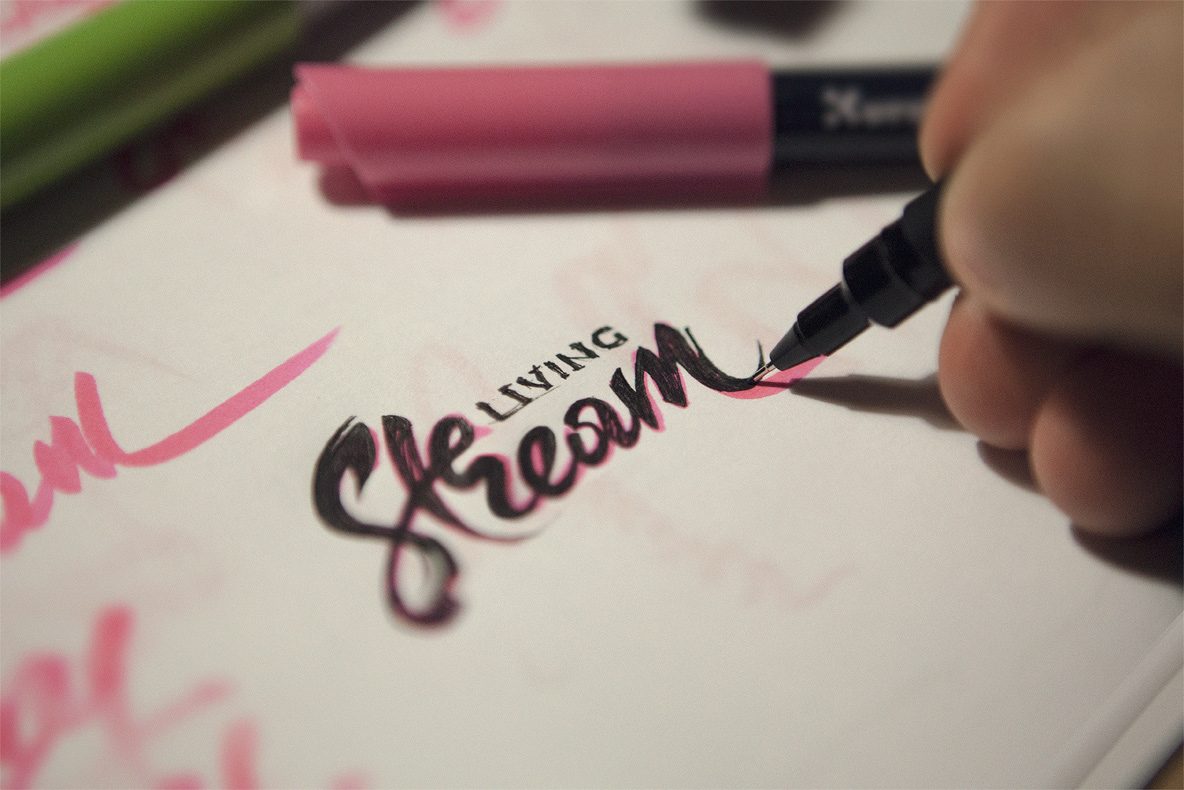 LIVING
Stream